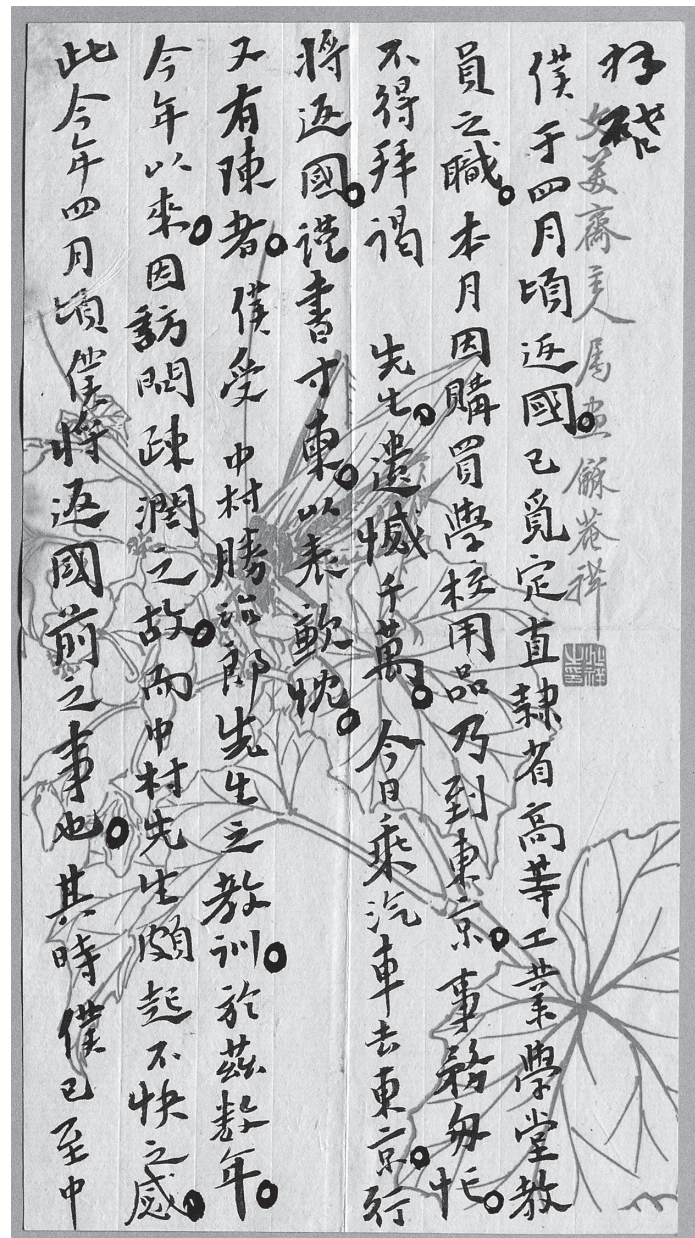 拜啓
僕于四月頃返國。已覓定直隸省高等工業學堂教
員之職。本月因購買學校用品乃到東京。事務匆忙。
不得拜謁 先生。遺憾千萬。今日乘汽車去東京行
將返國。謹書寸柬。以表歉忱。
又有陳者。僕受 中村勝治郎先生之教訓。於茲數年。
今年以來。因訪問疎濶之故。而中村先生頗起不快之感。
此今年四月頃僕將返國前之事也。其時僕已至中
文美齋主人屬畫龢菴祥